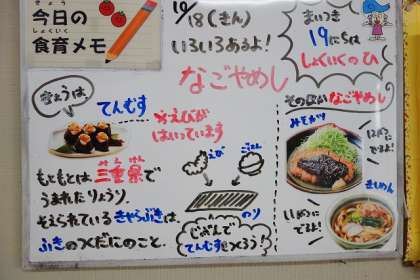 きょう
今日の
しょくいく
食育メモ
10/18(きん)
いろいろあるよ!
なごやめし
まいつき
19にちは
しょくいくのひ
きょうは
てんむす
※えびが
はいっています
もともとは三重県で
うまれたりょうり。
そえられているきゃらぶきは、
ふきのつくだにのこと。
えび
ごはん
のり
じぶんで
てんむすをつくろう!
そのほかなごやめし
みそカツ
きしめん